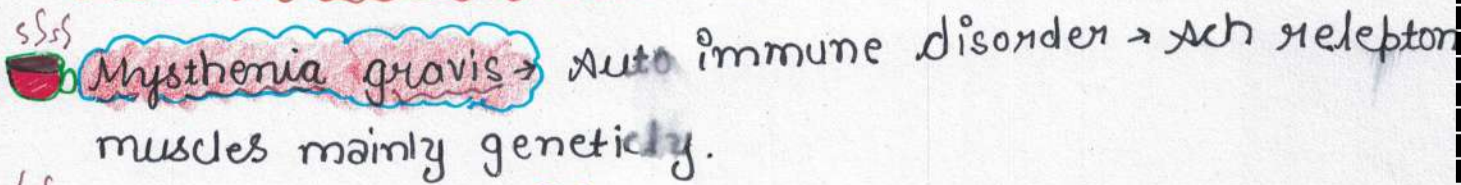 Mysthenia gravis → Auto immune disorder → Ach releptor
muscles mainly geneticly.